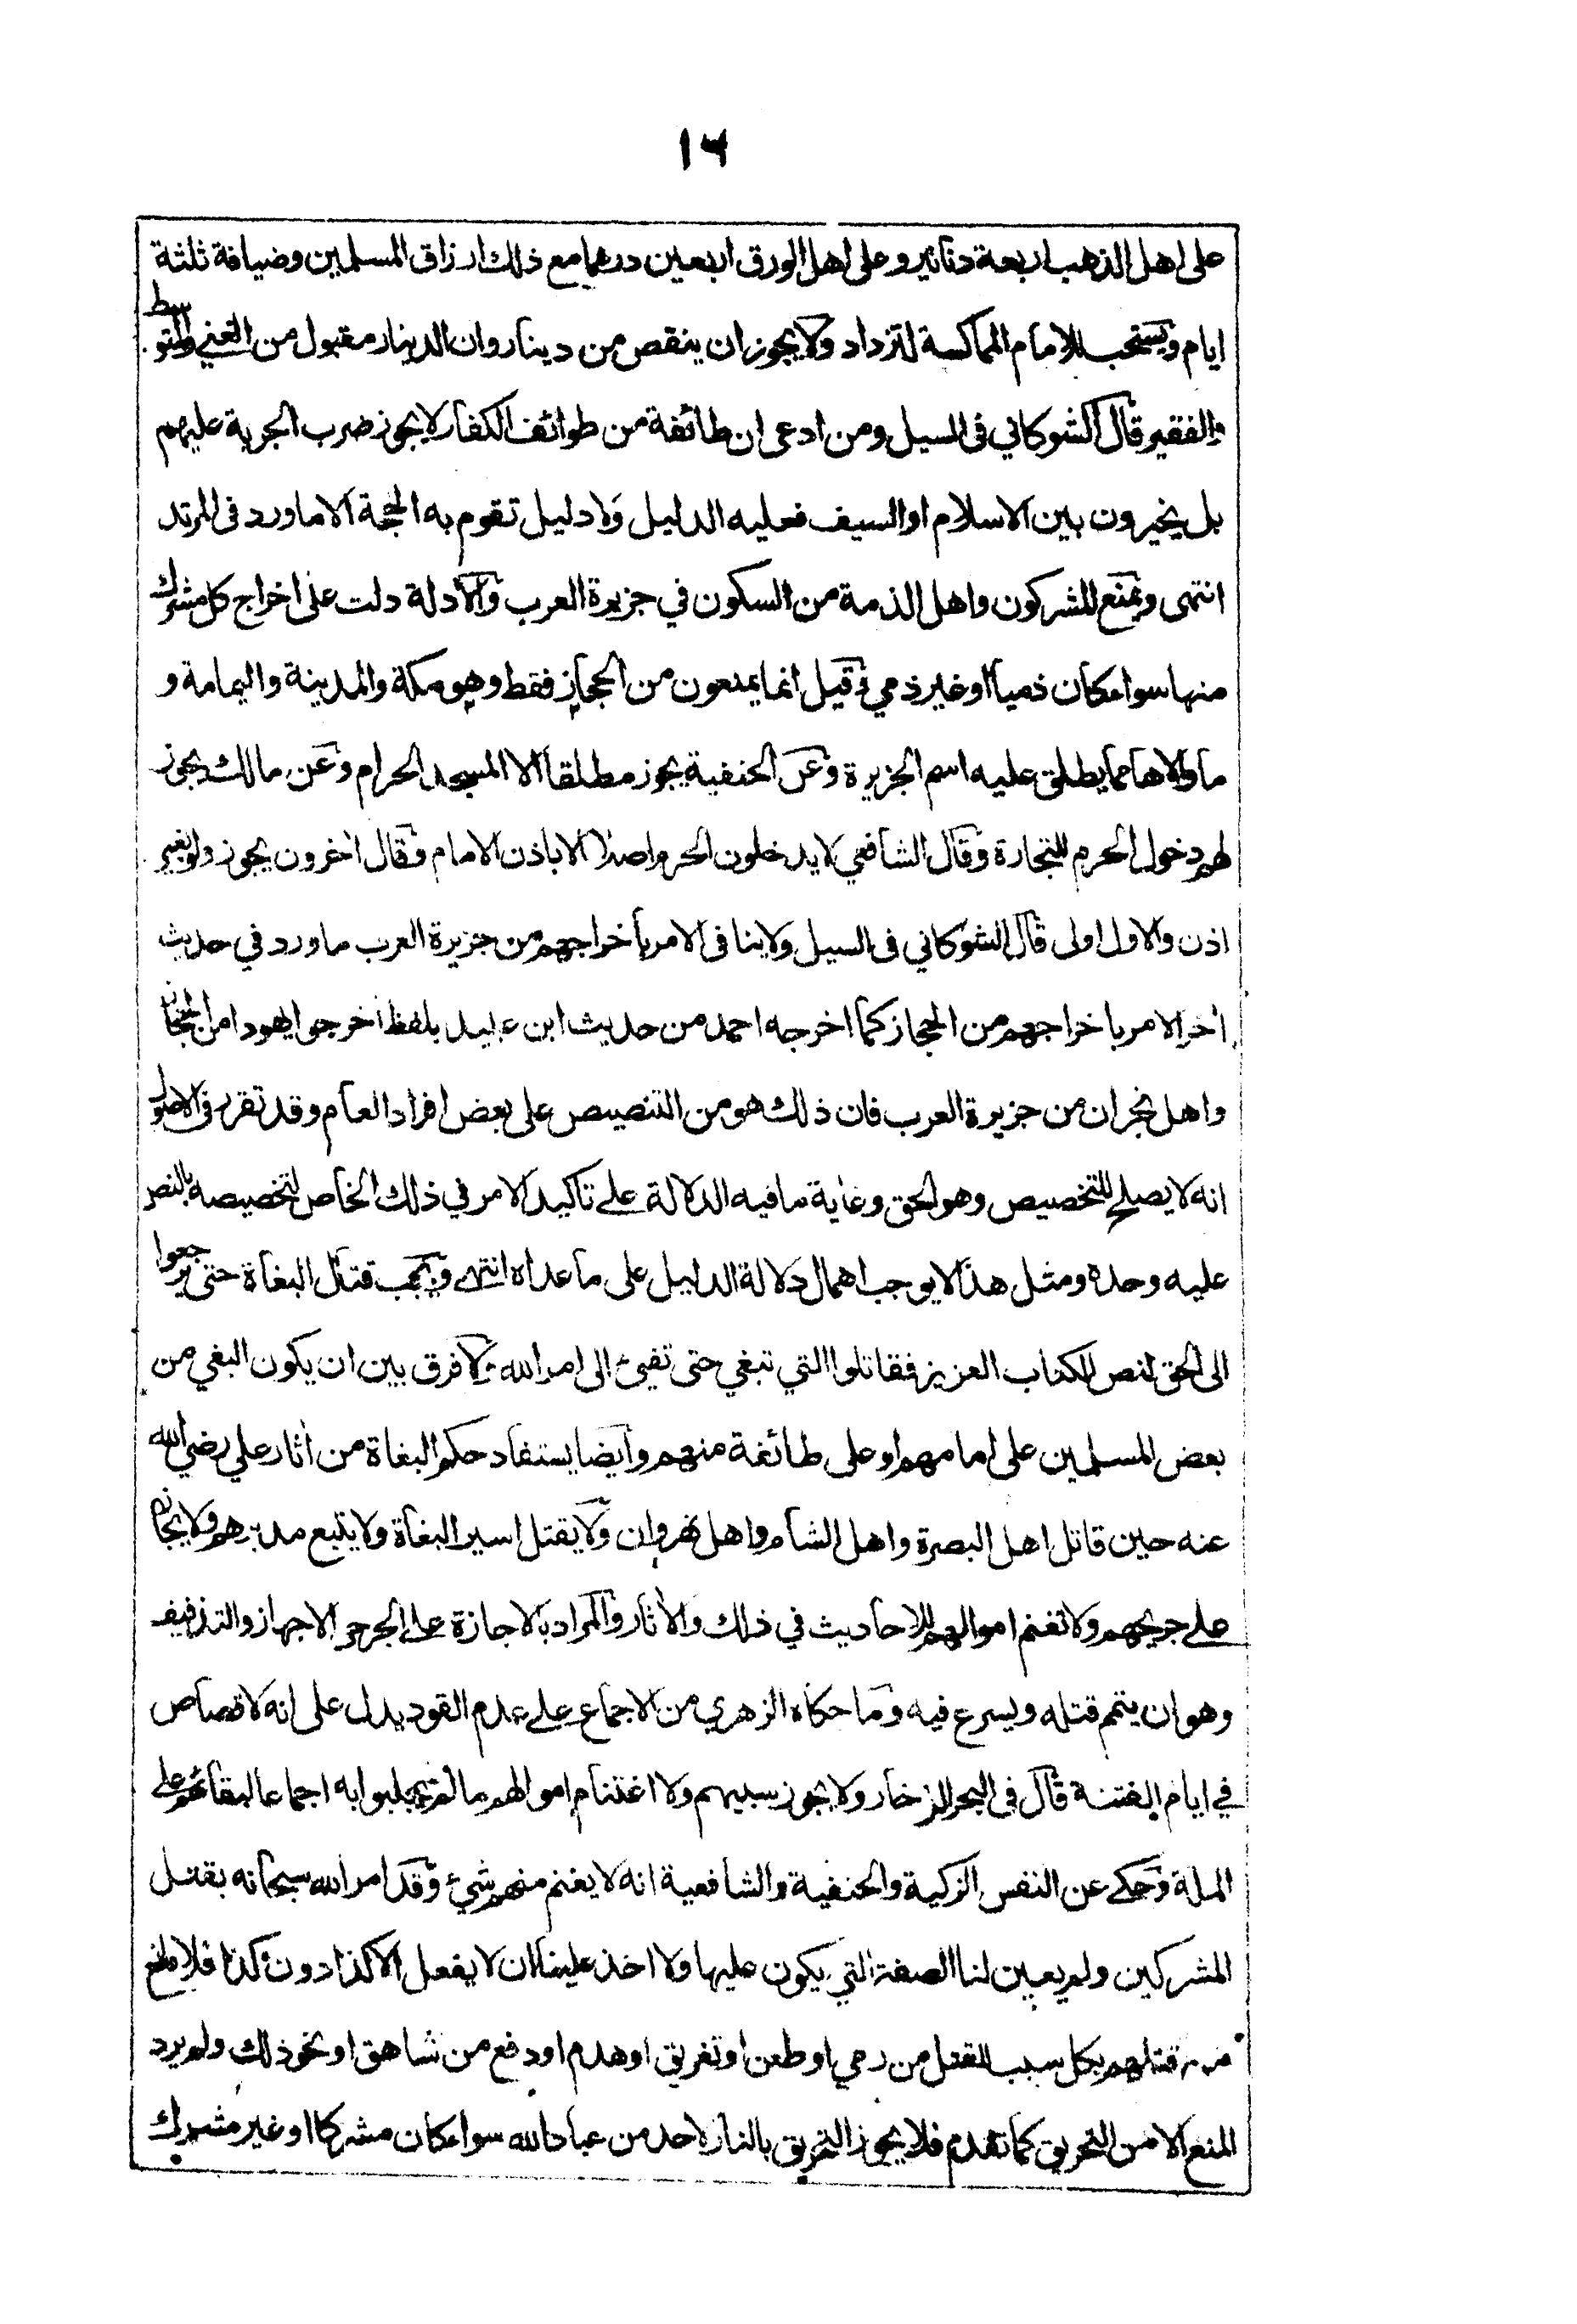 ١٦
على اهل الذهب اربعة دنانير وعلى اهل الورق اربعين درهما مع ذلك ارزاق المسلمين وضيافة ثلثة
ايام ويستحب للامام المماكسة لتزداد ولا يجوز ان ينقص من دينار وان الدينار مقبول من الغني والمتوسط
والفقير قال الشوكاني في السيل ومن ادعى ان طائفة من طوائف الكفار لا يجوز ضرب الجزية عليهم
بل يخيرون بين الاسلام او السيف فعليه الدليل ولا دليل تقوم به الحجة الا ما ورد في المرتد
انتهى ويمنع المشركون واهل الذمة من السكون في جزيرة العرب والادلة دلت على اخراج كل مشرك
منها سواء كان ذميا او غير ذمي وقيل انما يمنعون من الحجاز فقط وهو مكة والمدينة واليمامة و
ما والاها مما يطلق عليه اسم الجزيرة وعن الحنفية يجوز مطلقا الا المسجد الحرام وعن مالك يجوز
لهم دخول الحرم للتجارة وقال الشافعي لا يدخلون الحرم اصلا الا باذن الامام وقال اخرون يجوز ولو بغير
اذن والاول اولى قال الشوكاني في السيل ولا ينافي الامر باخراجهم من جزيرة العرب ما ورد في حديث
اخر الامر باخراجهم من الحجاز كما اخرجه احمد من حديث ابن عبيد بلفظ اخرجوا يهود امن الحجاز
واهل نجران من جزيرة العرب فان ذلك هو من التنصيص على بعض افراد العام وقد تقرر في الاصول
انه لا يصلح للتخصيص وهو الحق وغاية ما فيه الدلالة على تاكيد الامر في ذلك الخاص لتخصيصه بالنص
عليه وحده ومثل هذا لا يوجب اهمال دلالة الدليل على ما عداه انتهى ويجب قتال البغاة حتى يرجعوا
الى الحق لنص الكتاب العزيز فقاتلوا التي تبغي حتى تفيئ الى امر الله ولا فرق بين ان يكون البغي من
بعض المسلمين على امامهم او على طائفة منهم وايضا يستفاد حكم البغاة من اثار علي رضي الله
عنه حين قاتل اهل البصرة واهل الشام واهل نهروان ولا يقتل اسير البغاة ولا يتبع مدبرهم ولا يجاز
على جريحهم ولا تغنم اموالهم للاحاديث في ذلك والاثار والمراد بالاجازة على الجرحى الاجهاز والتذفيف
وهو ان يتمم قتله ويسرع فيه وما حكاه الزهري من الاجماع على عدم القود يدل على انه لا قصاص
في ايام الفتنة قال في البحر الزخار ولا يجوز سبيهم ولا اغتنام اموالهم ما لم يجلبوا به اجماعا لبقائهم على
الملة وحكي عن النفس الزكية والحنفية والشافعية انه لا يغنم منهم شيئ وقد امر الله سبحانه بقتل
المشركين ولم يعين لنا الصفة التي يكون عليها ولا اخذ علينا ان لا يفعل الا كذا دون كذا فلا مانع
من قتلهم بكل سبب للقتل من رمي او طعن او تغريق او هدم او دفع من شاهق او نحو ذلك ولم يرد
المنع الا من التحريق كما تقدم فلا يجوز التحريق بالنار لاحد من عباد الله سواء كان مشركا او غير مشرك